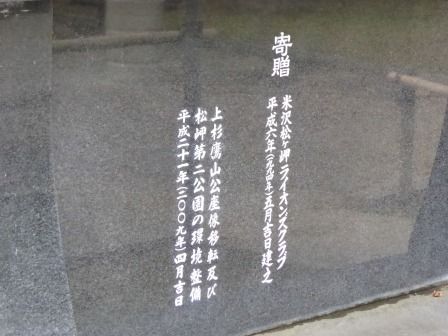 寄贈
米沢松ヶ岬ライオンズクラブ
平成六年(一九九四年)五月吉日建之
上杉鷹山公座像移転及び
松岬第二公園の環境整備
平成二十一年(二〇〇九年)四月吉日